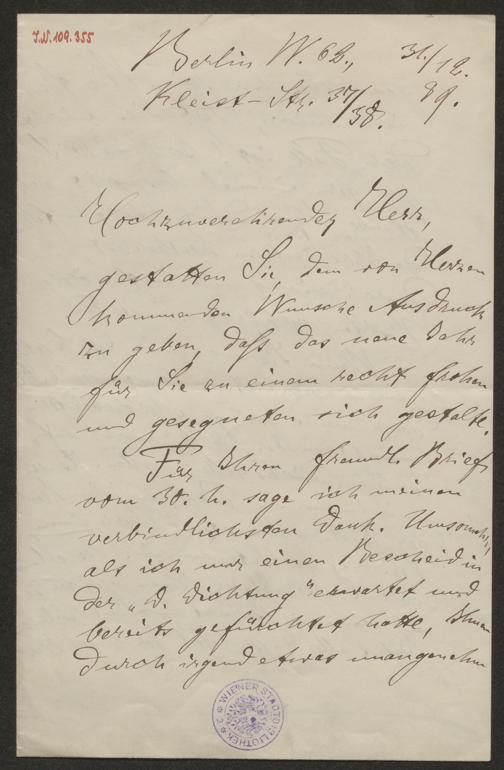 J.N. 109.355
Berlin W. 62., 31./12.
Kleist-Str. 37/38. 89.
Hochzuverehrender Herr,
gestatten Sie, dem von Herzen
kommenden Wunsche Ausdruck
zu geben, daß das neue Jahr
für Sie zu einem recht frohen
und gesegneten sich gestalte.
Für Ihren freundl. Brief
vom 30. h. sage ich meinen
verbindlichsten Dank. Umsomehr,
als ich nur einen Bescheid in
der „D. Dichtung" erwartet und
bereits gefürchtet hatte, Ihnen
durch irgend etwas unangenehm
WIENER STADTBIBLIOTHEK